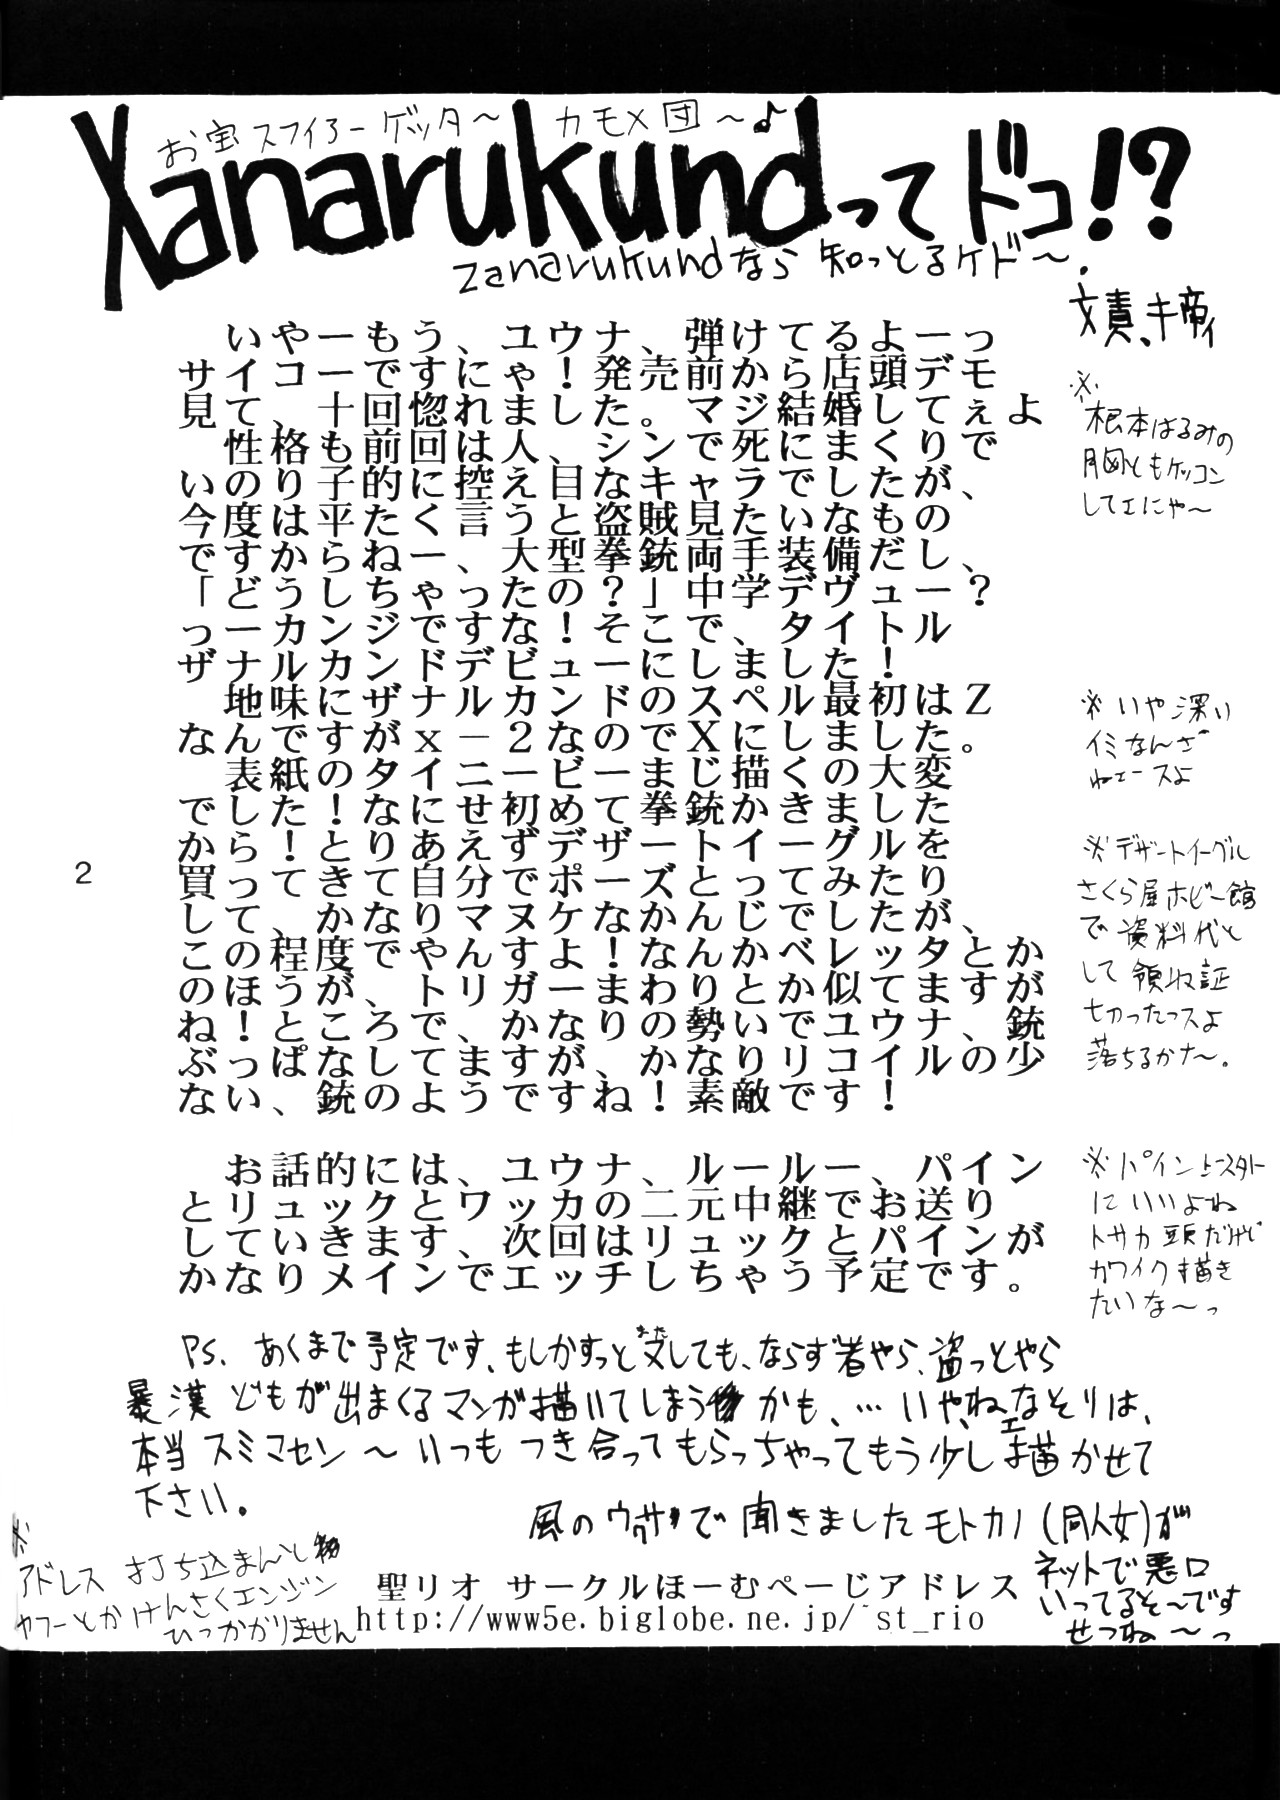 お宝スフィアーゲッター〜 カモメ団〜♪
Xanarukundってドコ!?
zanarukundなら 知っとるケド〜.
文責、キ帝ィ
いやーもう、ユウナ、弾けてるよーっ
サイコーですにゃ!発売前から店頭デモ
見て、十回惚れました。マジ結婚してぇよ
性格も前回は人、シンで死にまくりで
いのり子的に控え目なキャラでしたが、
今度は平たく言うと盗賊見たいなもの
ですからねー、大型拳銃両手装備だし、
「どうしちゃったの?」中学デヴュー?
っーカンジですな!そこで、タイトル
ザナルカンドデビューにしました!
地味にザナルカンドのスペル最初はZ
なんですがx-2なのでXにしました。
表紙のタイニービーまじ描くの大変
でした!なにせ初めて拳銃かきました
から!とりあえずデザートイーグルを
買ってきて自分でポーズとってみたり
して、かなりマヌケなかんじでしたが、
この程度でやんすよ!なんかべレッタとか
のほうが、トリガーまわりとか似てますが
ね!ところで、かなりの勢いでユウナ、銃
ぶっぱなしてますが、かなりリコイルの少
ない、銃のようですね!素敵です!
お話的には、ユウナ、ルールー、パイン
とリュックと、ワッカの二元中継でお送り
していきます、次回はリュックとパインが
かなりメインでエッチしちゃう予定です。
※
根本はるみの
胸ともケッコン
してエにゃ〜
※いや深い
イミなんざ
ねェースよ
※デザートイーグル
さくら屋ホビー館
で資料代と
して領収証
もかったっスよ
落ちるかナ〜。
※パイン
にいいよね
トサカ頭だけど
カワイク描き
たいな〜っ
2
PS. あくまで予定です、もしかすっと またしても、ならず者やら、盗っとやら
暴漢どもが出まくるマンガ描いてしまうかも、… いや、ねェなそりは、
本当スミマセン〜いつもつき合ってもらっちゃってもう少し描かせて
下さい。
風のウワサで聞きましたモトカノ(同人女)が
ネットで悪口
いってるそ〜です
せつね〜っ
※
アドレス 打ち込まんと
ヤフーとかけんさくエンジン
ひっかかりません
聖リオ サークルほーむぺーじアドレス
http://www5e.biglobe.ne.jp/~st_rio